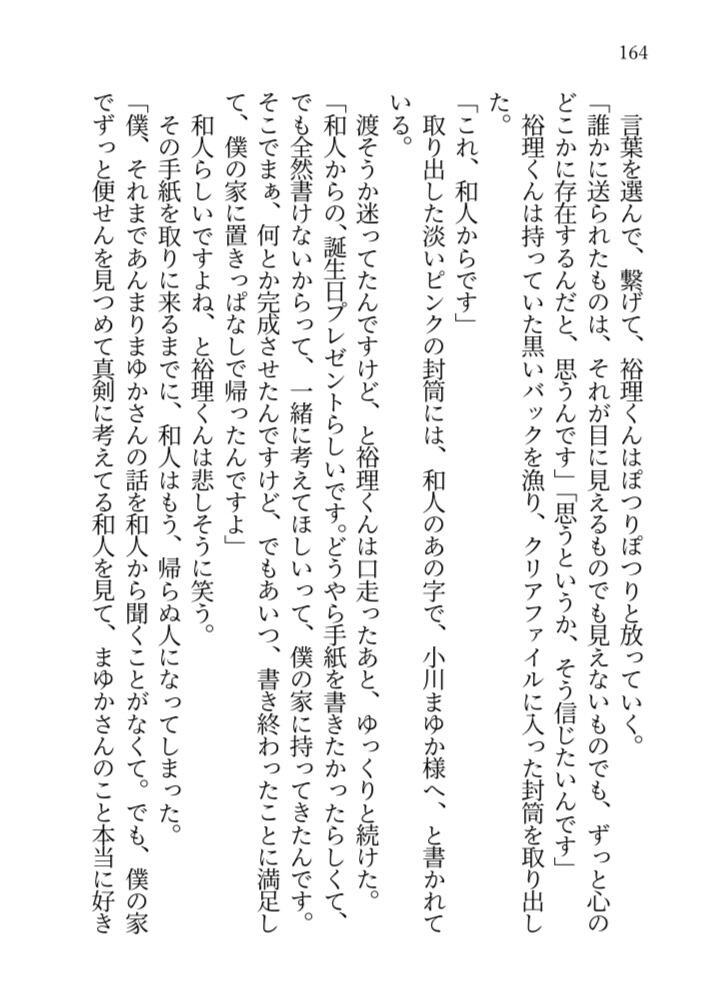 164
　言葉を選んで、繋げて、裕理くんはぽつりぽつりと放っていく。
「誰かに送られたものは、それが目に見えるものでも見えないものでも、ずっと心の
どこかに存在するんだと、思うんです」「思うというか、そう信じたいんです」
　裕理くんは持っていた黒いバックを漁り、クリアファイルに入った封筒を取り出し
た。
「これ、和人からです」
　取り出した淡いピンクの封筒には、和人のあの字で、小川まゆか様へ、と書かれて
いる。
　渡そうか迷ってたんですけど、と裕理くんは口走ったあと、ゆっくりと続けた。
「和人からの、誕生日プレゼントらしいです。どうやら手紙を書きたかったらしくて、
でも全然書けないからって、一緒に考えてほしいって、僕の家に持ってきたんです。
そこでまぁ、何とか完成させたんですけど、でもあいつ、書き終わったことに満足し
て、僕の家に置きっぱなしで帰ったんですよ」
　和人らしいですよね、と裕理くんは悲しそうに笑う。
　その手紙を取りに来るまでに、和人はもう、帰らぬ人になってしまった。
「僕、それまであんまりまゆかさんの話を和人から聞くことがなくて。でも、僕の家
でずっと便せんを見つめて真剣に考えてる和人を見て、まゆかさんのこと本当に好き